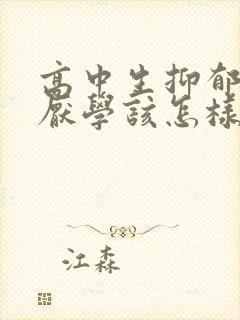 高中生抑郁
厭學該怎樣
江森